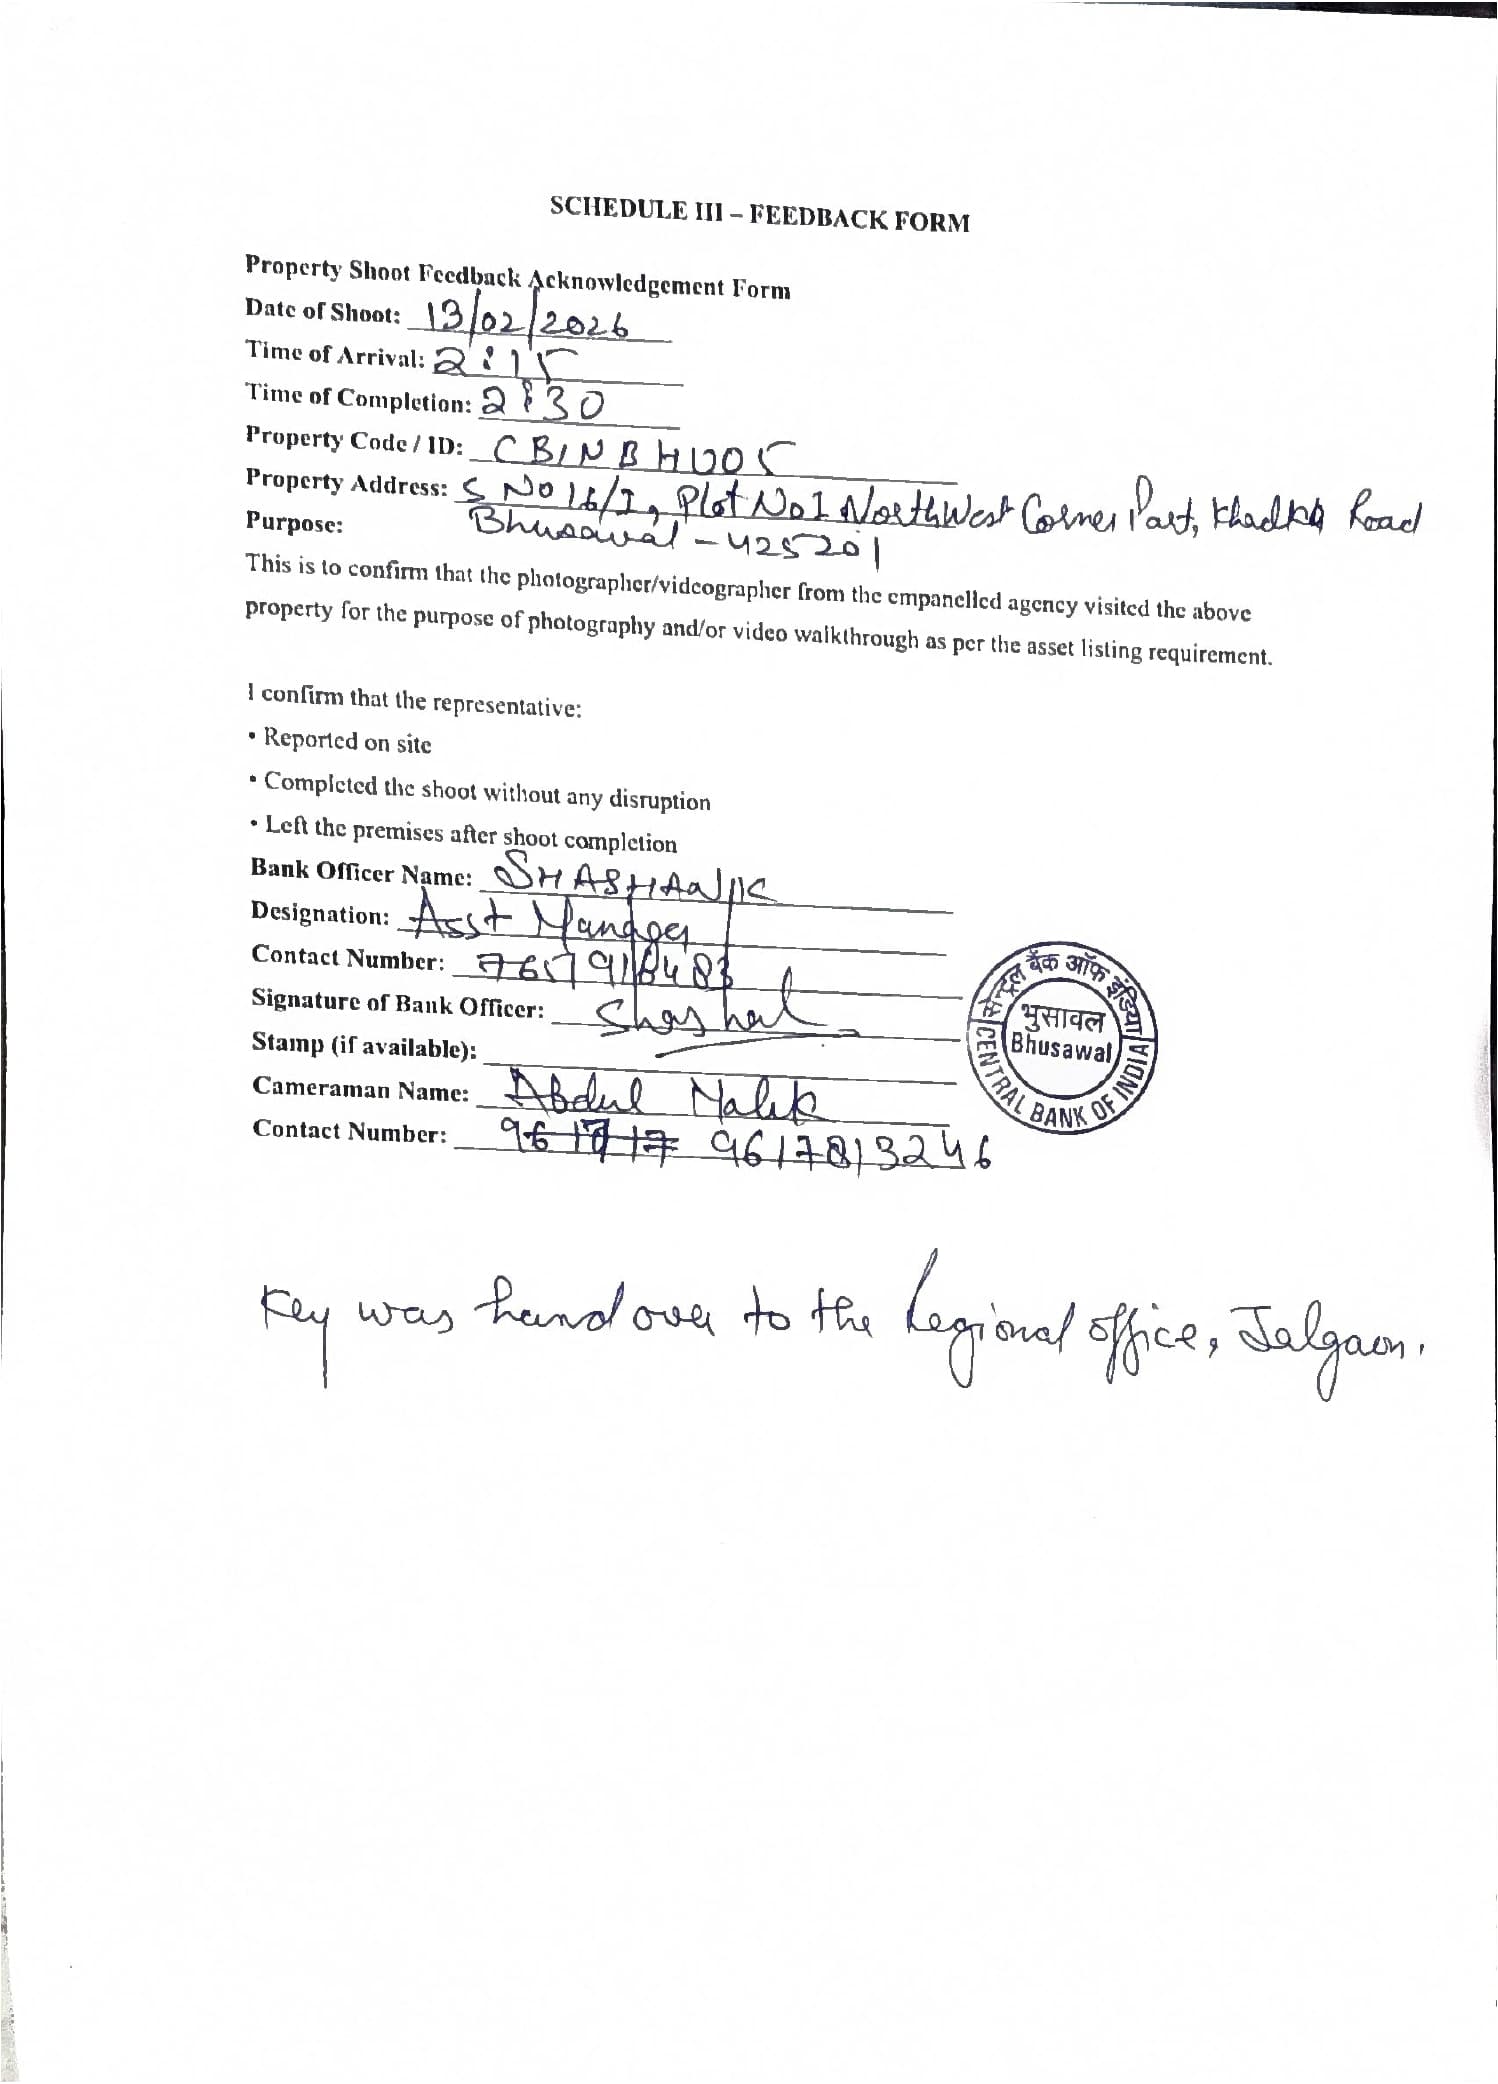 SCHEDULE III – FEEDBACK FORM
Property Shoot Feedback Acknowledgement Form
Date of Shoot: 13/02/2026
Time of Arrival: 2:15
Time of Completion: 2:30
Property Code / ID: CBINBHU05
Property Address: S No 16/1, Plot No 1 North West Corner Part, Khadka Road
Purpose: Bhusawal – 425201
This is to confirm that the photographer/videographer from the empanelled agency visited the above
property for the purpose of photography and/or video walkthrough as per the asset listing requirement.
I confirm that the representative:
• Reported on site
• Completed the shoot without any disruption
• Left the premises after shoot completion
Bank Officer Name: SHASHANK
Designation: Asst Manager
Contact Number:
Signature of Bank Officer: Shashank
Stamp (if available):
Cameraman Name: Abdul Malik
Contact Number: 9617813246
सेन्ट्रल बैंक ऑफ इंडिया
भुसावल
Bhusawal
CENTRAL BANK OF INDIA
Key was hand over to the Regional office, Jalgaon.